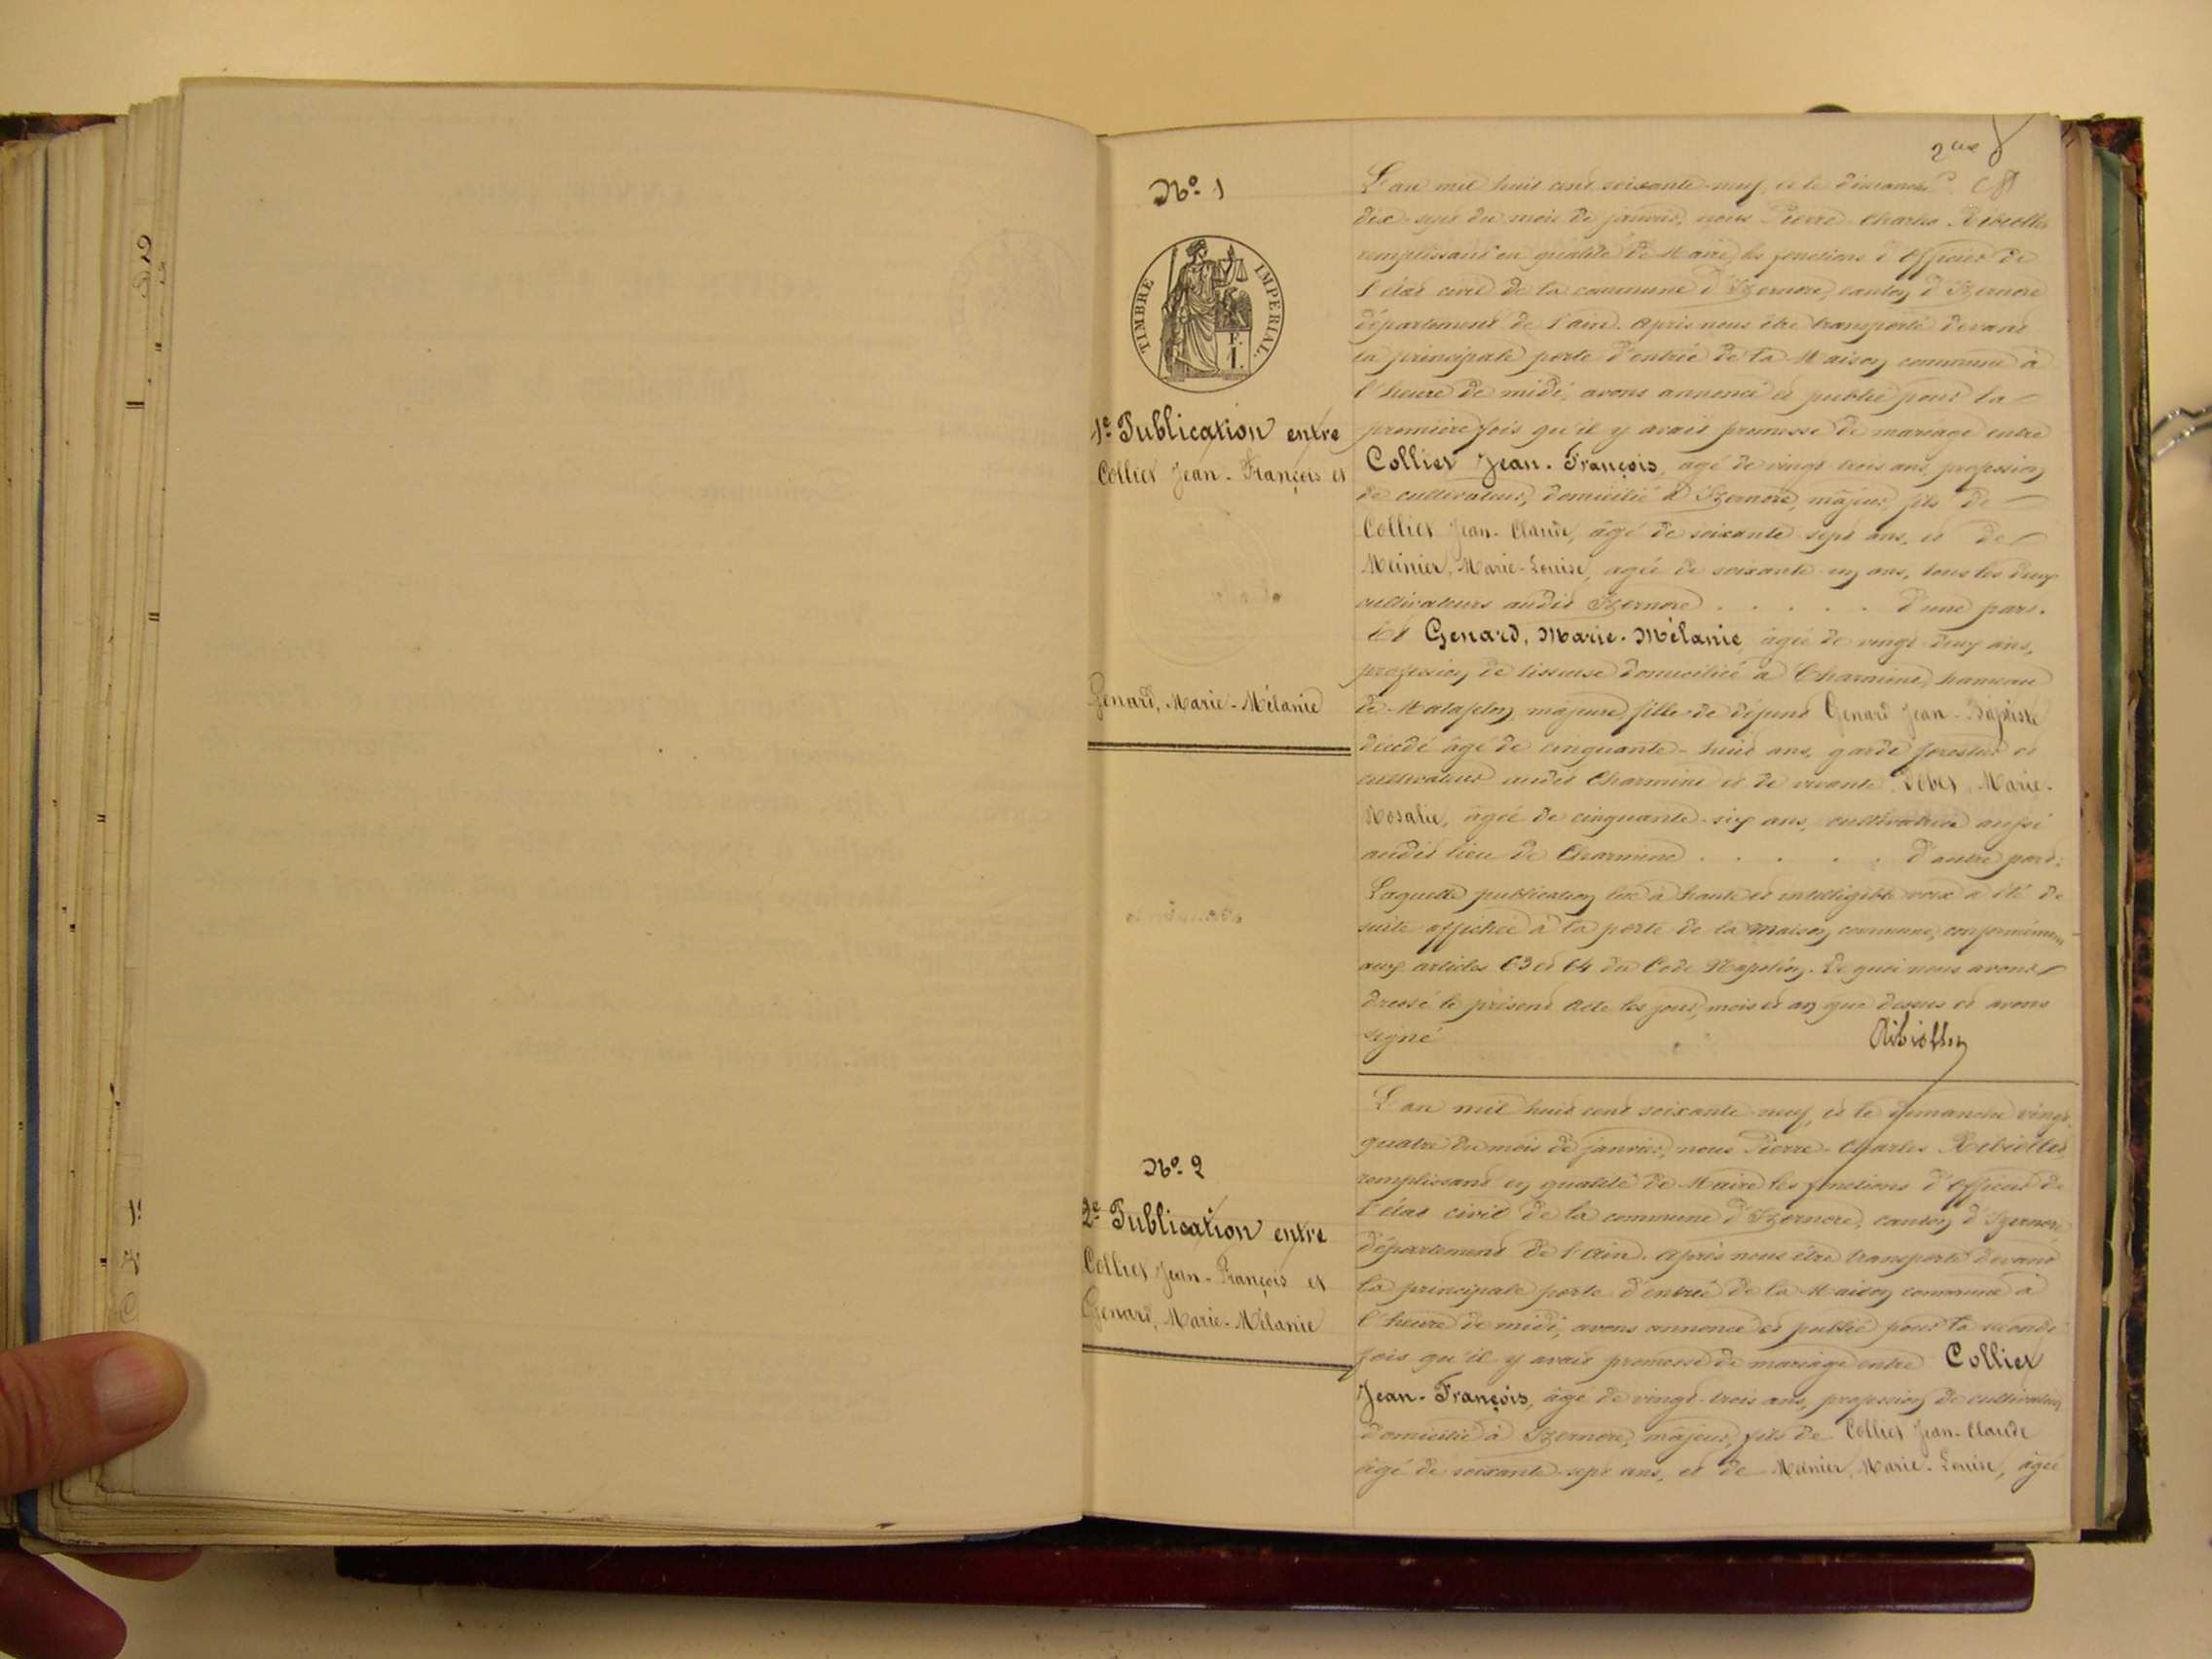 2me
N° 1
TIMBRE IMPÉRIAL.
F.
1.
1e Publication entre
Collier Jean-François et
Genard, Marie-Mélanie
L'an mil huit cent soixante-neuf, et le dimanche
dix-sept du mois de janvier, nous Pierre-Charles
remplissant en qualité de Maire, les fonctions d'officier de
l'état civil de la commune d'Izernore, canton d'Izernore
département de l'ain. Après nous être transporté devant
la principale porte d'entrée de la Maison commune à
l'heure de midi, avons annoncé et publié pour la
première fois qu'il y avait promesse de mariage entre
Collier Jean-François, agé de vingt trois ans, profession
de cultivateur, domicilié à Izernore, majeur, fils de
Collier Jean-Claude, âgé de soixante sept ans, et de
Meinier, Marie-Louise, agée de soixante un ans, tous les deux
cultivateurs audit Izernore . . . . . d'une part.
Et Genard, Marie-Mélanie, âgée de vingt-deux ans,
profession de tisseuse domiciliée à Charmine, hameau
de Matafelon, majeure, fille de défunt Genard Jean-Baptiste
décédé âgé de cinquante-huit ans, garde forestier et
cultivateur audit Charmine et de vivante Marie-
Rosalie, âgée de cinquante-six ans, cultivatrice aussi
audit lieu de Charmine . . . . . d'autre part.
Laquelle publication lue à haute et intelligible voix a été de
suite affichée à la porte de la maison commune, conformément
aux articles 63 et 64 du Code Napoléon. De quoi nous avons
dressé le présent acte les jour, mois et an que dessus et avons
signé
N° 2
2e Publication entre
Collier Jean-François et
Genard, Marie-Mélanie
L'an mil huit cent soixante-neuf, et le dimanche vingt
quatre du mois de janvier, nous Pierre-Charles
remplissant en qualité de Maire les fonctions d'officier de
l'état civil de la commune d'Izernore, canton d'Izernore
département de l'Ain. Après nous être transporté devant
la principale porte d'entrée de la Maison commune à
l'heure de midi, avons annoncé et publié pour la seconde
fois qu'il y avait promesse de mariage entre Collier
Jean-François, âgé de vingt-trois ans, profession de cultivateur
domicilié à Izernore, majeur, fils de Collier Jean-Claude
âgé de soixante-sept ans, et de Meinier, Marie-Louise, âgée